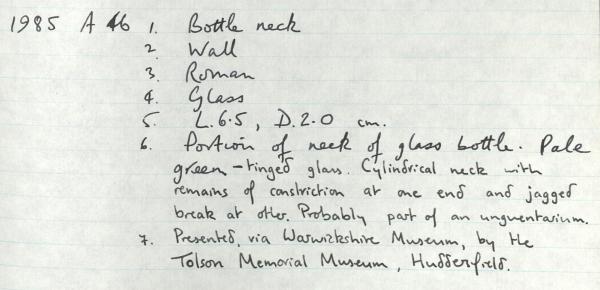 1985 A 46 1. Bottle neck
2 Wall
3. Roman
4. Glass
5. L. 6.5, D. 2.0 cm.
6. Portion of neck of glass bottle. Pale
green-tinged glass. Cylindrical neck with
remains of constriction at one end and jagged
break at other. Probably part of an unguentarium.
7. Presented, via Warwickshire Museum, by the
Tolson Memorial Museum, Hudderfield.